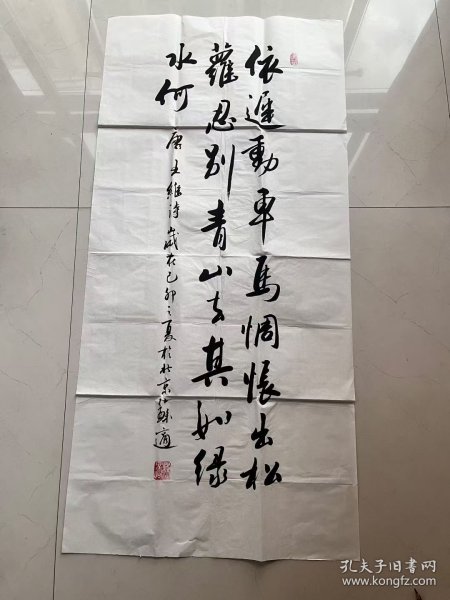 依遲動車馬惆悵出松
蘿忍別青山去其如绿
水何
唐王維诗 歲在己卯之夏於北京 蘇適
孔夫子旧书网
www.kongfz.com